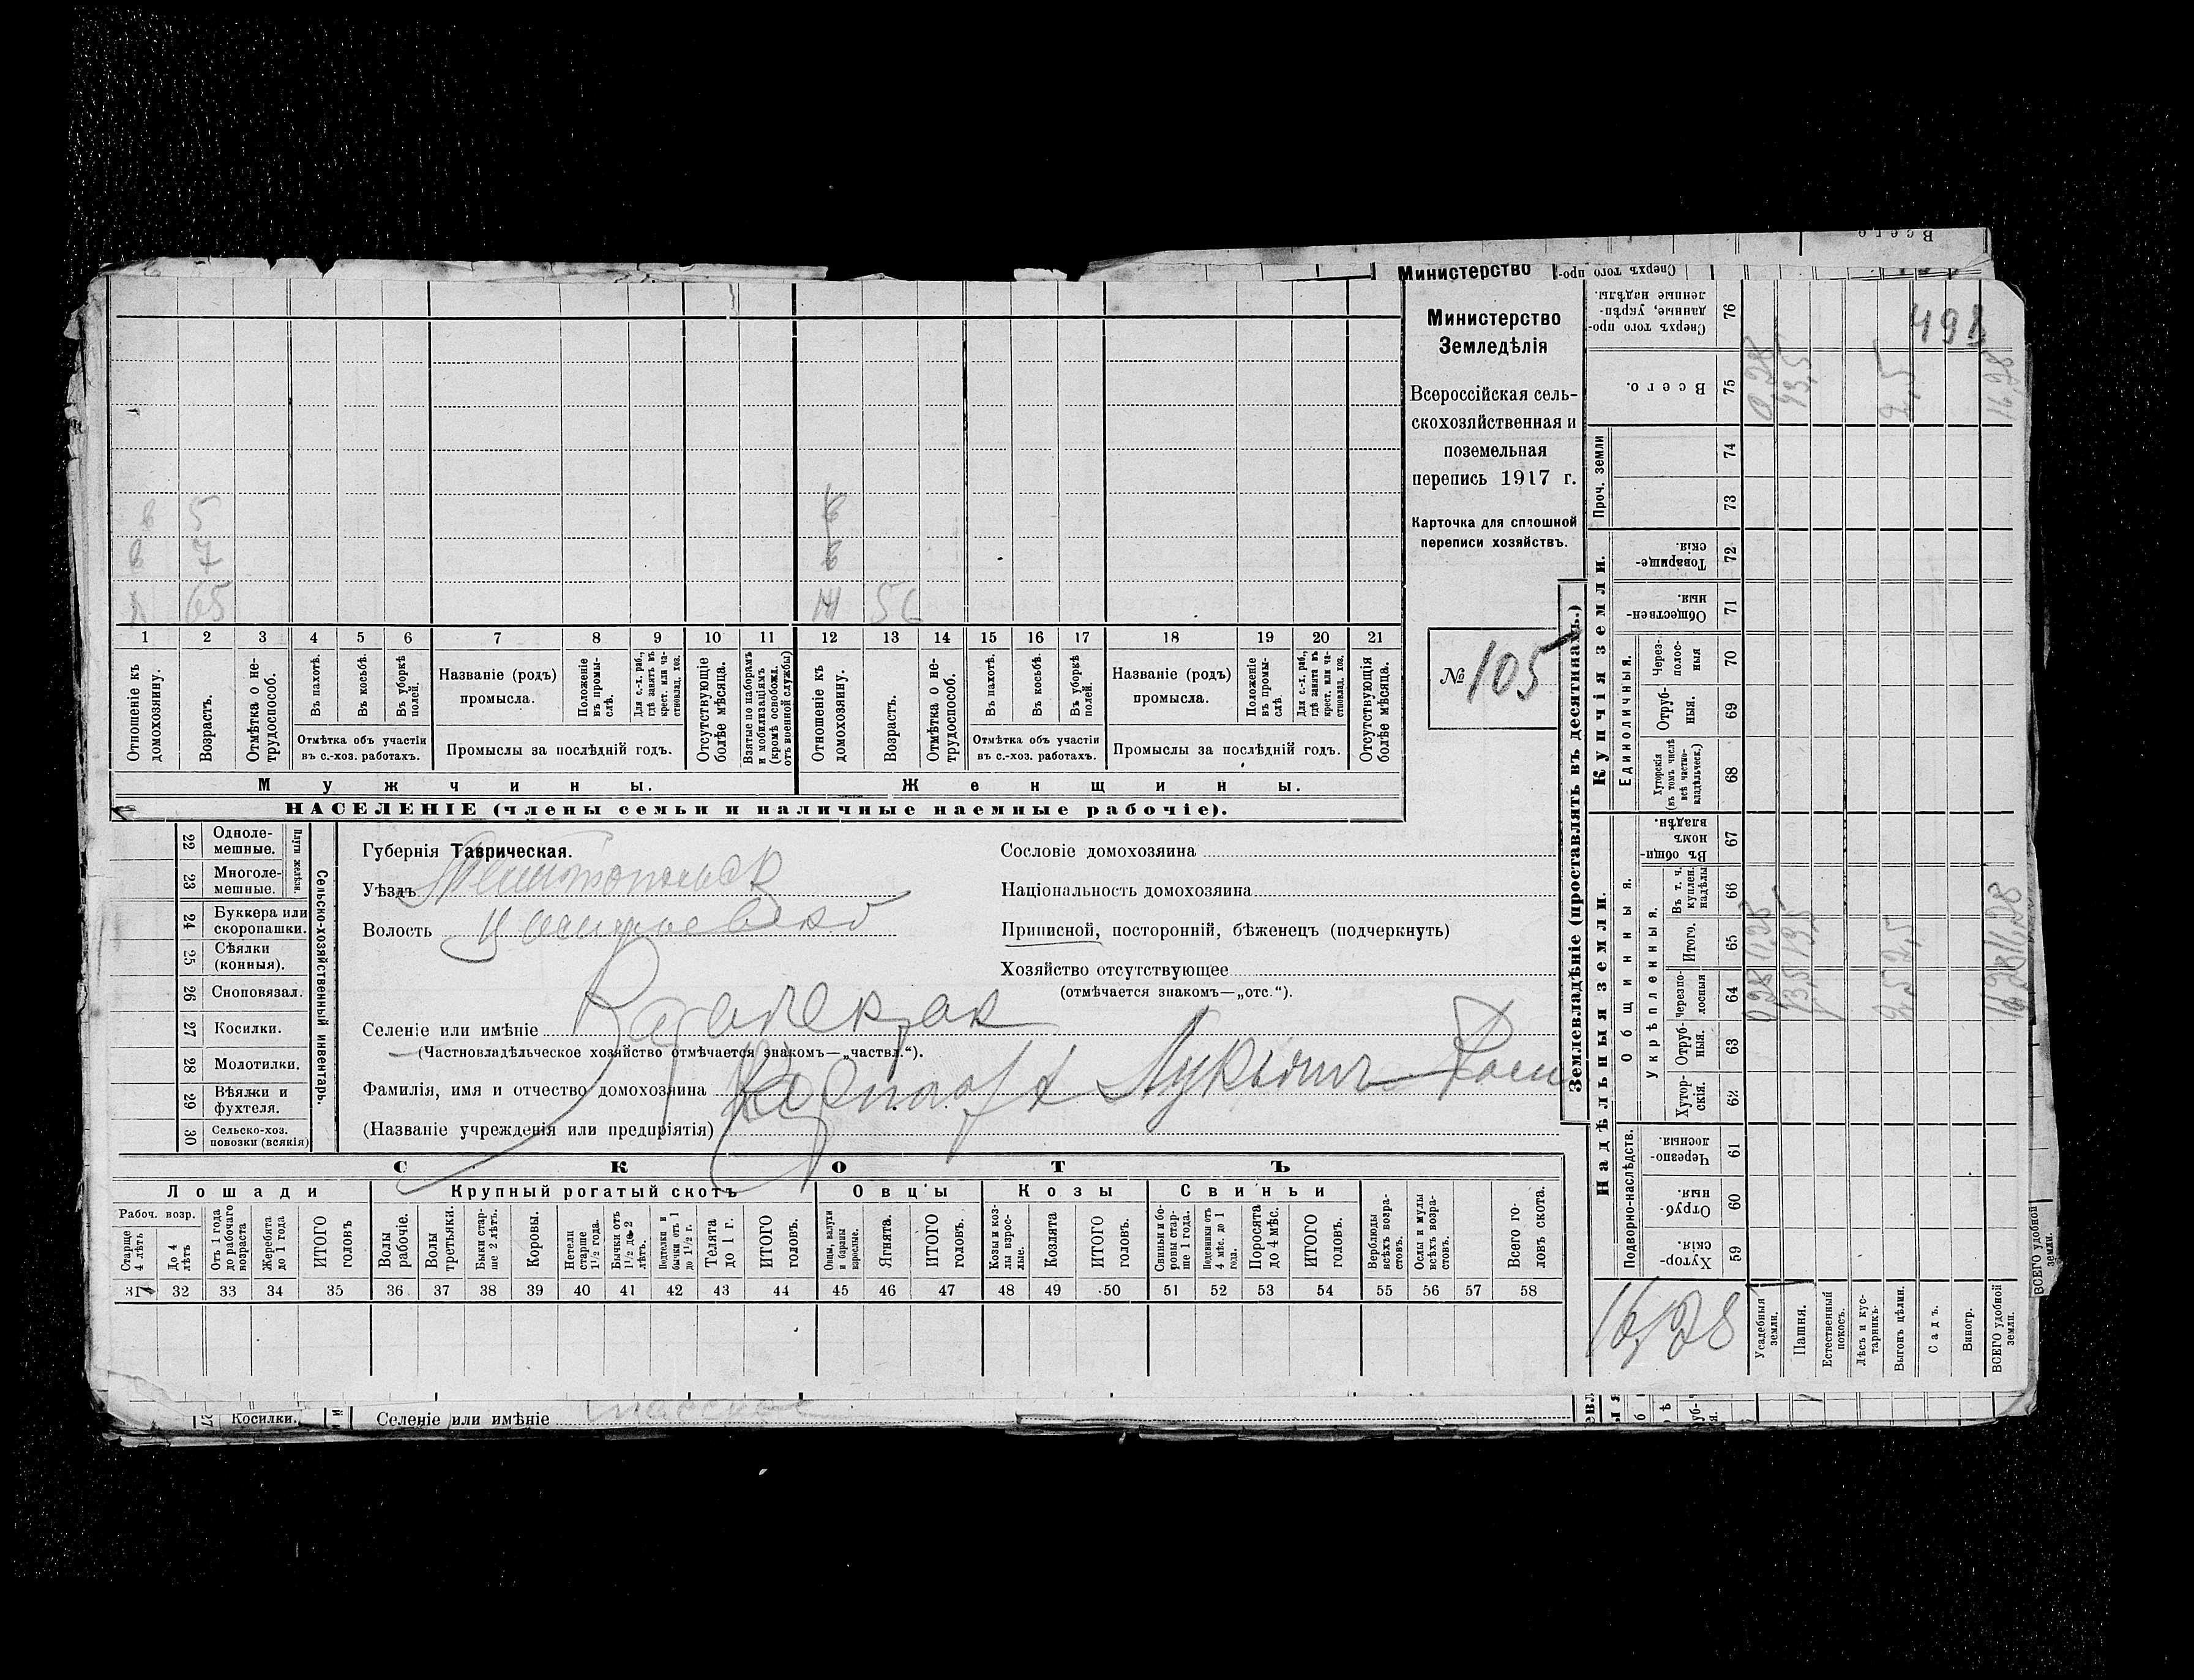 Министерство
Министерство
Земледѣлія
Всероссійская сель-
скохозяйственная и
поземельная
перепись 1917 г.
Карточка для сплошной
переписи хозяйствъ.
№ 105
5
7
65 56
1 2 3 4 5 6 7 8 9 10 11 12 13 14 15 16 17 18 19 20 21
Отношеніе къ домохозяину.
Возрастъ.
Отмѣтка о не-трудоспособ.
Въ пахотѣ.
Въ косьбѣ.
Въ уборкѣ полей.
Отмѣтка объ участіи въ с.-хоз. работахъ.
Названіе (родъ) промысла.
Положеніе въ промы-слѣ.
Для с.-х. раб., гдѣ занятъ въ крест. или ча-стновлад. хоз.
Промыслы за послѣдній годъ.
Отсутствующіе болѣе мѣсяца.
Взятые по наборамъ и мобилизаціямъ (кромѣ освобожд. отъ военной службы)
Отношеніе къ домохозяину.
Возрастъ.
Отмѣтка о не-трудоспособ.
Въ пахотѣ.
Въ косьбѣ.
Въ уборкѣ полей.
Отмѣтка объ участіи въ с.-хоз. работахъ.
Названіе (родъ) промысла.
Положеніе въ промы-слѣ
Для с.-х. раб., гдѣ занята въ крест. или ча-стновлад. хоз.
Промыслы за послѣдній годъ.
Отсутствующія болѣе мѣсяца.
Мужчины. Женщины.
НАСЕЛЕНІЕ (члены семьи и наличные наемные рабочіе).
Сельско-хозяйственный инвентарь.
Плуги желѣзн.
22 Одноле-мешные.
23 Многоле-мешные.
24 Буккера или скоропашки.
25 Сѣялки (конныя).
26 Сноповязал.
27 Косилки.
28 Молотилки.
29 Вѣялки и фухтеля.
30 Сельско-хоз. повозки (всякія)
Губернія Таврическая.
Уѣздъ
Волость
Селеніе или имѣніе
(Частновладѣльческое хозяйство отмѣчается знакомъ—„частвл.“).
Фамилія, имя и отчество домохозяина
(Названіе учрежденія или предпріятія)
Сословіе домохозяина
Національность домохозяина
Приписной, посторонній, бѣженецъ (подчеркнуть)
Хозяйство отсутствующее
(отмѣчается знакомъ—„отс.“).
СКОТЪ
Лошади Крупный рогатый скотъ Овцы Козы Свиньи
Рабоч. возр.
Старше 4 лѣтъ
До 4 лѣтъ
Отъ 1 года до рабочаго возраста
Жеребята до 1 года
ИТОГО головъ
Волы рабочіе.
Волы третьяки.
Быки стар-ше 2 лѣтъ.
Коровы.
Нетели старше 1½ года.
Бычки отъ 1½ до 2 лѣтъ.
Подтелки и бычки отъ 1 до 1½ г.
Телята до 1 г.
ИТОГО головъ.
Овцы, валухи и бараны взрослые.
Ягнята.
ИТОГО головъ.
Козы и коз-лы взрос-лые.
Козлята
ИТОГО головъ.
Свиньи и бо-ровы стар-ше 1 года.
Подсвинки отъ 4 мѣс. до 1 года.
Поросята до 4 мѣс.
ИТОГО головъ.
Верблюды всѣхъ возра-стовъ.
Ослы и мулы всѣхъ возра-стовъ.
Всего го-ловъ скота.
31 32 33 34 35 36 37 38 39 40 41 42 43 44 45 46 47 48 49 50 51 52 53 54 55 56 57 58
Землевладѣніе (проставлять въ десятинахъ.)
Купчія земли.
Надѣльныя земли.
76 Сверхъ того про-данные, укрѣп-ленные надѣлы.
75 Всего.
Проч. земли
74
73
72 Товарище-скія
71 Обществен-ныя.
Единоличныя.
70 Через-полос-ныя
69 Отруб-ныя.
68 Хуторскія (въ томъ числѣ всѣ частно-владѣльческ.)
Общинныя.
67 Въ общи-номъ владѣн.
Укрѣпленныя.
66 Въ т. ч. куплен. надѣлы
65 Итого.
64 Черезпо-лосныя
63 Отруб-ныя.
62 Хутор-скія.
Подворно-наслѣдств.
61 Черезпо-лосныя
60 Отруб-ныя
59 Хутор-скія.
Усадебныя земли.
Пашня.
Естественный покосъ.
Лѣсъ и кус-тарникъ.
Выгонъ цѣлин.
Садъ.
Виногр.
ВСЕГО удобной земли.
498
0,28 13,5 2,5 16,28
16,28
27 Косилки.
Селеніе или имѣніе
ВСЕГО удобной земли.